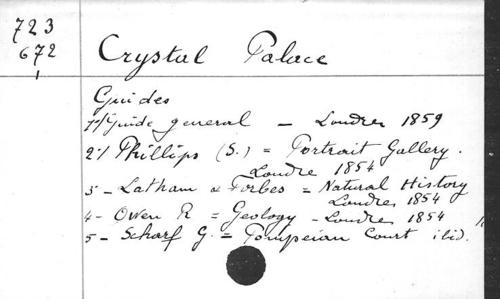 723
672
1
Crystal Palace
Guides
1°/ Guide general – Londres 1859
2°/ Phillips (S.) = Portrait Gallery.
Londre 1854
3 – Latham & Forbes = Natural History
Londres 1854
4 – Owen R = Geology – Londres 1854
5 – Scharf G. = Pompeian Court ibid.